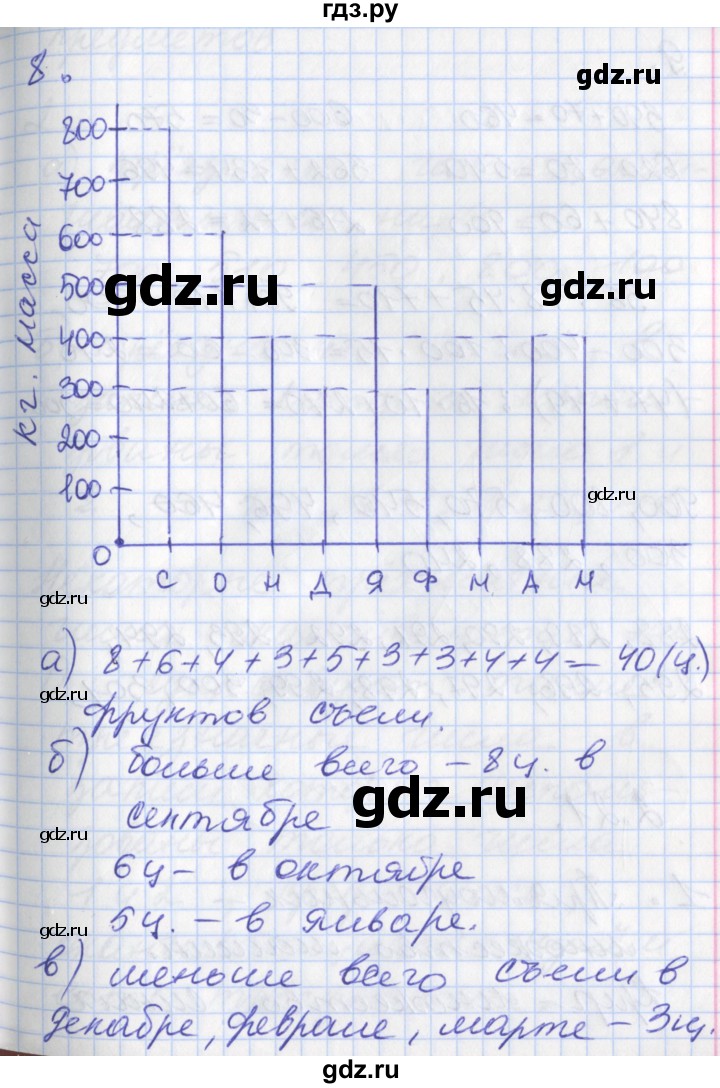 гдз.ру
8.
gdz.ru
800
700
600
500
400
300
200
100
0
кг. масса
gdz.ru
gdz.ru
gdz.ru
С О Н Д Я Ф М А М
gdz.ru
gdz.ru
а) 8+6+4+3+5+3+3+4+4=40(ц.)
gdz.ru
фруктов съели.
б) больше всего - 8ц. в
gdz.ru
сентябре
gdz.ru
6ц - в октябре
5ц. - в январе.
gdz.ru
в) меньше всего съели в
декабре, феврале, марте - 3ц.
gdz.ru
gdz.ru